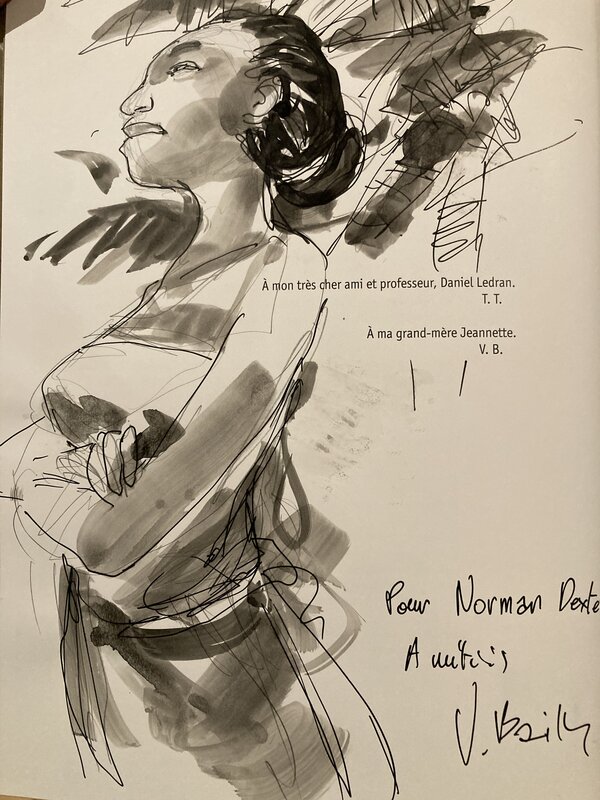 À mon très cher ami et professeur, Daniel Ledran.
T. T.
À ma grand-mère Jeannette.
V. B.
Pour Norman Dexte
Amitiés
V. Bailly